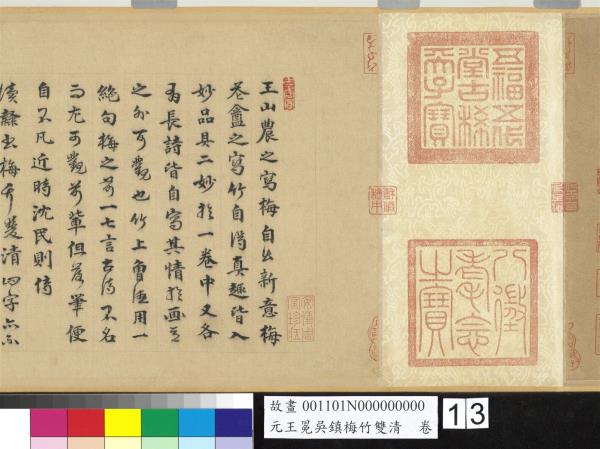 五福五代堂古稀天子寶
八徵耄念之寶
王山農之寫梅自出新意梅
花盦之寫竹自得真趣皆入
妙品具二妙於一卷中又各
有長詩皆自寫其情於畫意
之外可觀也竹上曾用一
絕句梅之前一七言古詩不名
而尤可觀前輩但落筆便
自不凡近時沈民則侍
讀隸書梅竹雙清四字亦亦
故畫 001101N000000000
元王冕吳鎮梅竹雙清 卷
13